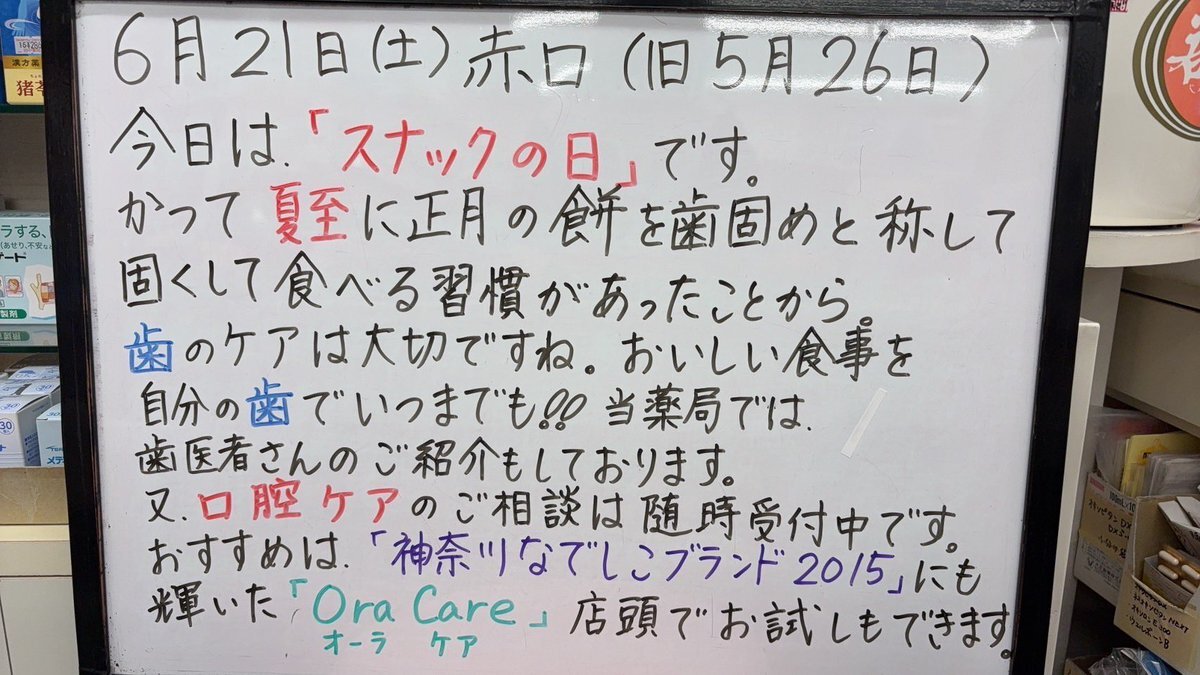 6月21日(土)赤口(旧5月26日)
今日は、「スナックの日」です。
かつて夏至に正月の餅を歯固めと称して
固くして食べる習慣があったことから。
歯のケアは大切ですね。おいしい食事を
自分の歯でいつまでも!! 当薬局では、
歯医者さんのご紹介もしております。
又、口腔ケアのご相談は随時受付中です。
おすすめは、「神奈川なでしこブランド2015」にも
輝いた「Ora Care」店頭でお試しもできます。
オーラ ケア
漢方薬
猪苓